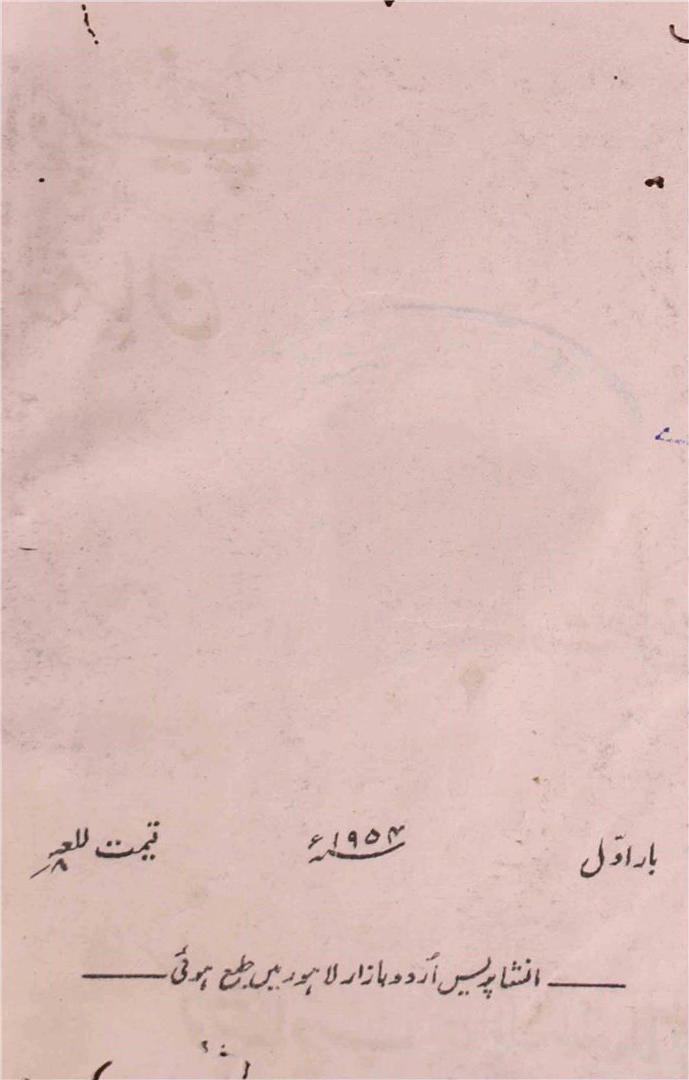 بار اوّل ۱۹۵۴ء قیمت للعہ
انشا پریس اُردو بازار لاہور میں طبع ہوئی